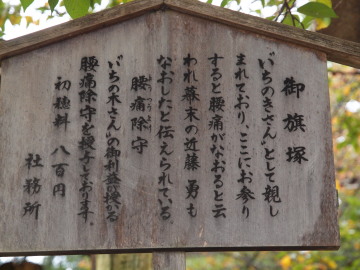 御旗塚
"いちのきさん"として親し
まれており、ここにお参り
すると腰痛がなおると云
われ幕末の近藤 勇も
なおしたと伝えられている
腰痛除守
"いちの木さん"の御利益の授かる
腰痛除守を授与しております。
初穂料 八百円
社務所